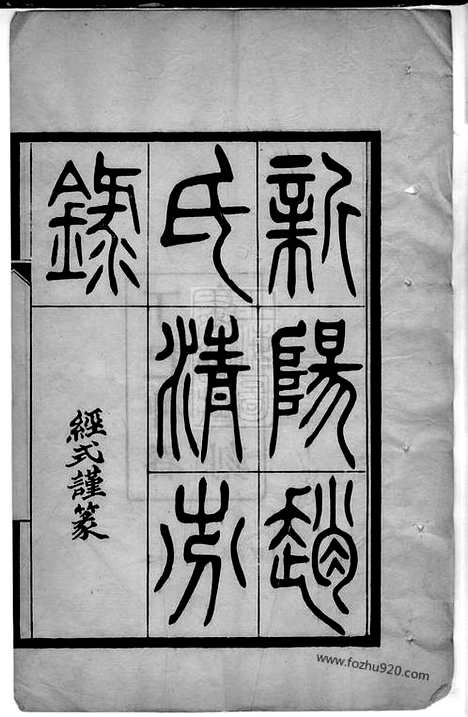 新陽趙
氏清芬
錄
經式謹篆
www.fozhu920.com